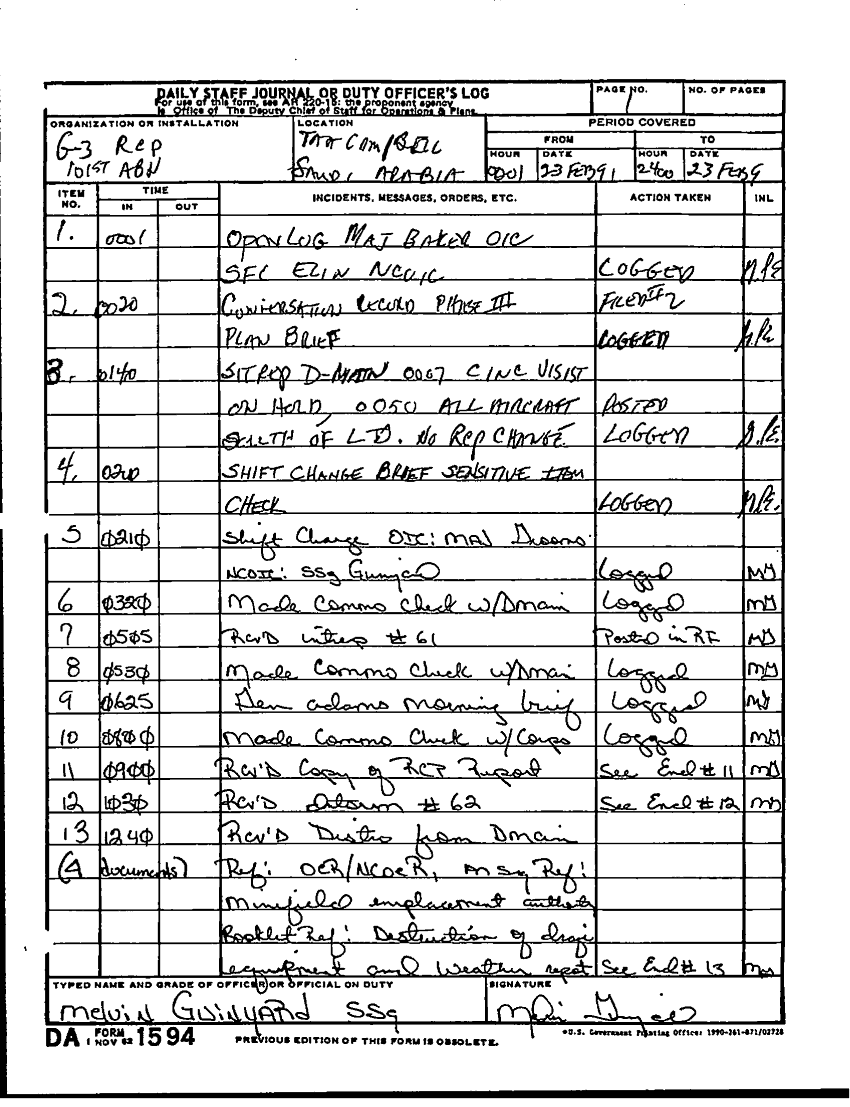 DAILY STAFF JOURNAL OR DUTY OFFICER'S LOG
For use of this form, see AR 220-15: the proponent agency
is Office of The Deputy Chief of Staff for Operations & Plans
PAGE NO.
1
NO. OF PAGES
ORGANIZATION OR INSTALLATION
G-3 Rep
101ST ABN
LOCATION
TAA CAMPBELL
SAUDI ARABIA
PERIOD COVERED
FROM TO
HOUR DATE HOUR DATE
0001 23 FEB 91 2400 23 FEB 9
ITEM NO. TIME IN OUT INCIDENTS, MESSAGES, ORDERS, ETC. ACTION TAKEN INL
1. 0001 OPEN LOG MAJ BAKER OIC
SFC ELIN NCOIC LOGGED
2. 0020 CONVERSATION RECORD PHASE III FILED #2
PLAN BRIEF LOGGED
3. 0140 SITREP D-MAIN 0007 CINC VISIST
ON HOLD, 0050 ALL AIRCRAFT POSTED
SOUTH OF LD. NO REP CHANGE LOGGED
4. 0200 SHIFT CHANGE BRIEF SENSITIVE ITEM
CHECK LOGGED
5 0210 Shift Change OIC: MAJ
NCOIC: SSg Gwinyard Logged MG
6 0320 Made Commo Check w/Dmain Logged MG
7 0505 Rcv'D intrep # 61 Posted in RF MG
8 0530 Made Commo Check w/Dmai Logged MG
9 0625 Gen adams morning brief Logged MG
10 Made Commo Check w/Corps Logged MG
11 0900 Rcv'D Copy of Report See Encl # 11 MG
12 1030 Rcv'D # 62 See Encl # 12 MG
13 1240 Rcv'D Distro from Dmain
(4 documents) Ref: OER/NCOER, msg Ref:
minefield emplacement authority
Booklet Ref: Destruction of
equipment and Weather repot See Encl # 13
TYPED NAME AND GRADE OF OFFICER OR OFFICIAL ON DUTY
MELVIN GWINYARD SSg
SIGNATURE
DA FORM 1 NOV 62 1594
PREVIOUS EDITION OF THIS FORM IS OBSOLETE.
*U.S. Government Printing Office: 1990-261-871/02728